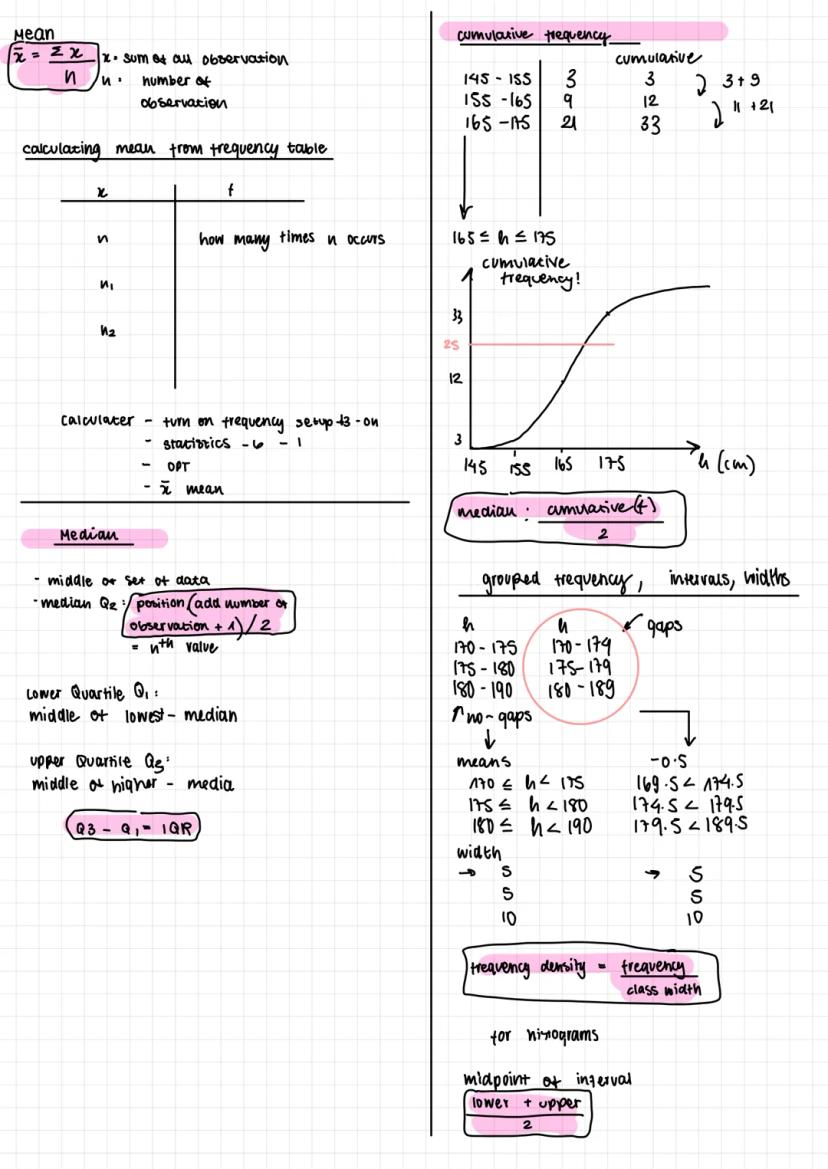 Mean
x̄ = Σx / n
x = sum of all observation
n = number of
observation
calculating mean from frequency table
x f
n how many times n occurs
n₁
n₂
calculater - turn on frequency setup 3 - on
- statistics - 6 - 1
- OPT
- x̄ mean
Median
- middle of set of data
- median Q2: position (add number of
observation + 1) / 2
= nth value
Lower Quartile Q1:
middle of lowest - median
upper Quartile Q3:
middle of higher - media
Q3 - Q1 = IQR
cumulative frequency
cumulative
145 - 155 3 3 3+9
155 - 165 9 12 11 +21
165 - 175 21 33
165 ≤ h ≤ 175
cumulative
frequency!
33
25
12
3
145 155 165 175 h (cm)
median: cumulative (f) / 2
grouped frequency, intervals, widths
h h gaps
170 - 175 170 - 174
175 - 180 175 - 179
180 - 190 180 - 189
↑ no - gaps
means -0.5
170 ≤ h < 175 169.5 < 174.5
175 ≤ h < 180 174.5 < 179.5
180 ≤ h < 190 179.5 < 189.5
width
→ 5 → 5
5 5
10 10
frequency density = frequency / class width
for histograms
midpoint of interval
lower + upper / 2